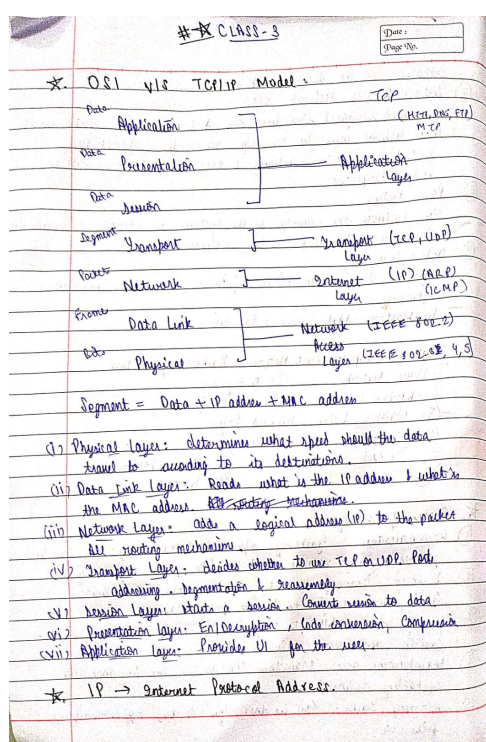 #☆ CLASS-3
Date :
Page No.
☆. OSI V/S TCP/IP Model :
TCP
Data
Application
(HTTP, DNS, FTP)
Data
Presentation
Application
Layer
Data
Session
Segment
Transport
Transport (TCP, UDP)
Layer
Packets
Network
Internet (IP) (ARP)
Layer (ICMP)
Frame
Data Link
Network (IEEE 802.2)
Bits
Physical
Access
Layer (IEEE 802. 4, 5)
Segment = Data + IP address + MAC address
(i) Physical Layer: determines what speed should the data
travel to according to its destinations.
(ii) Data Link Layer: Reads what is the IP address & what is
the MAC address. All routing mechanisms.
(iii) Network Layer: adds a logical address (IP) to the packet
All routing mechanisms.
(iv) Transport Layer: decides whether to use TCP or UDP. Port
addressing. Segmentation & reassembly
(v) Session Layer: starts a session. Convert session to data
(vi) Presentation layer: En/Decryption, Code conversion, Compression
(vii) Application Layer: Provides UI for the user.
☆ IP → Internet Protocol Address.